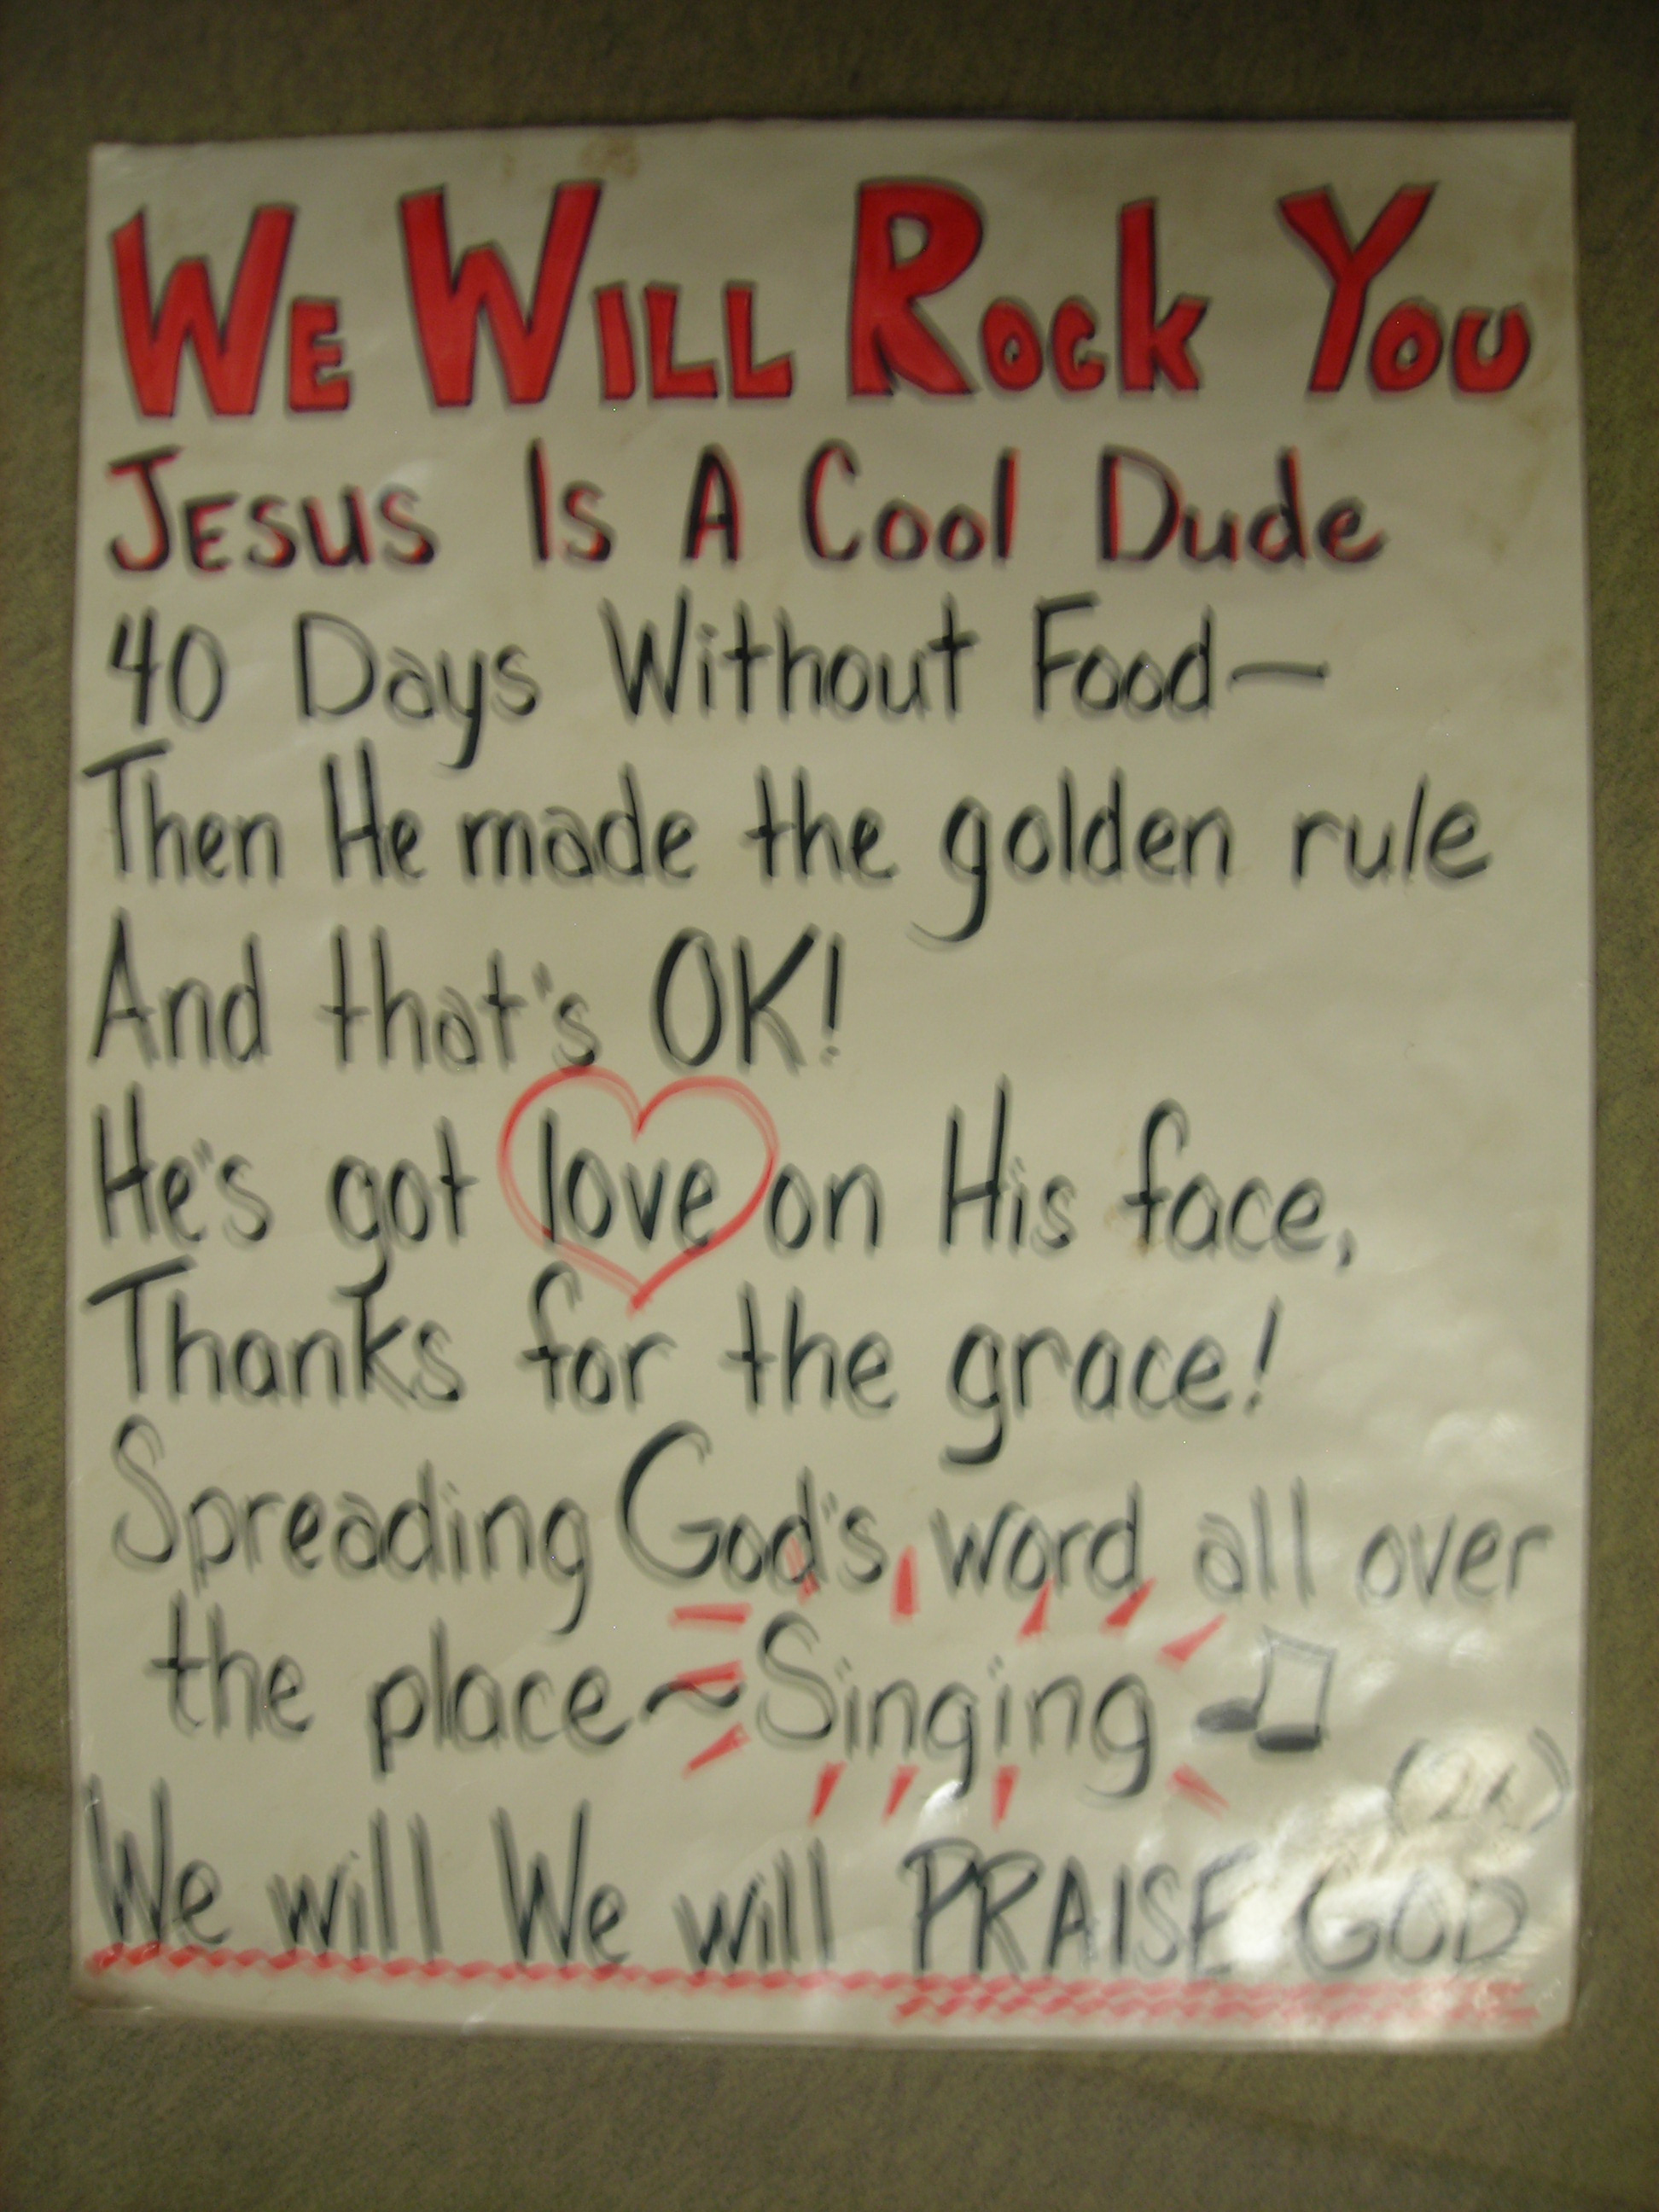 WE WILL ROCK YOU
JESUS IS A Cool Dude
40 Days Without Food—
Then He made the golden rule
And that's OK!
He's got love on His face,
Thanks for the grace!
Spreading God's word all over
the place~Singing
(2x)
We will We will PRAISE GOD